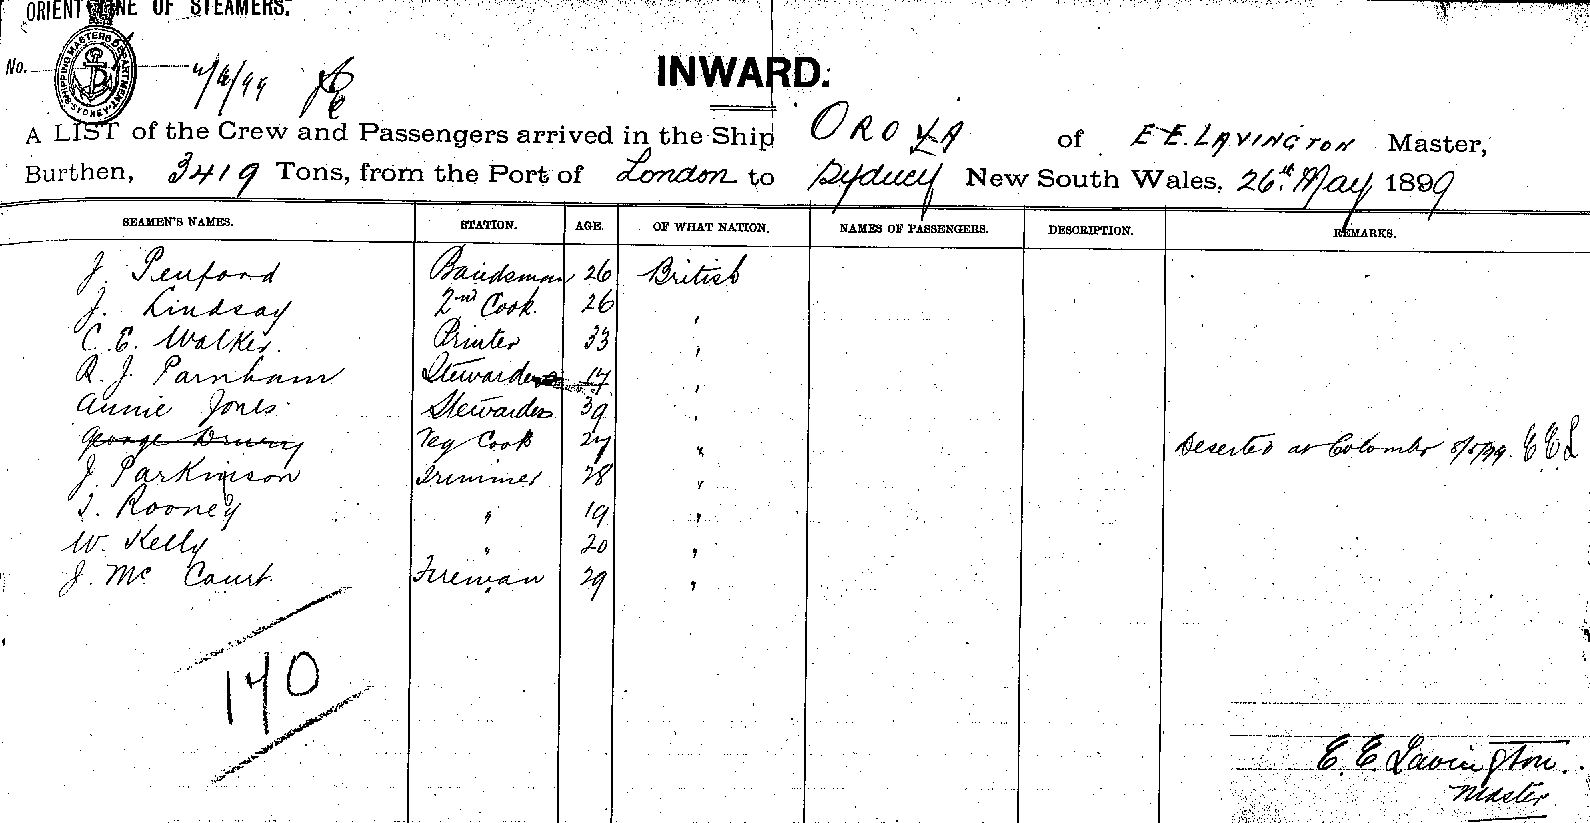 ORIENT LINE OF STEAMERS.
SHIPPING MASTERS DEPARTMENT SYDNEY
No.
INWARD.
A LIST of the Crew and Passengers arrived in the Ship OROYA of E E. LAVINGTON Master,
Burthen, 3419 Tons, from the Port of London to Sydney New South Wales, 26th May 1899
SEAMEN'S NAMES. STATION. AGE. OF WHAT NATION. NAMES OF PASSENGERS. DESCRIPTION. REMARKS.
J. Penford Bandsman 26 British
J. Lindsay 2nd Cook. 26 "
C. E. Walker. Printer 33 "
R. J. Parnham Steward 17 "
Annie Jones Stewardess 39 "
George Drury Veg Cook 27 " Deserted at Colombo 8/5/99. E E L
J. Parkinson Trimmer 28 "
T. Rooney " 19 "
W. Kelly " 20 "
J. Mc Court. Fireman 29 "
170
E. E. Lavington.
Master